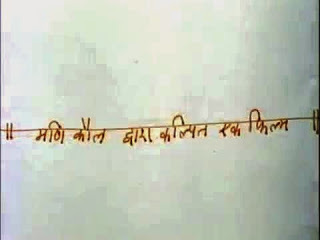 ॥ मणि कौल द्वारा कल्पित एक फिल्म ॥